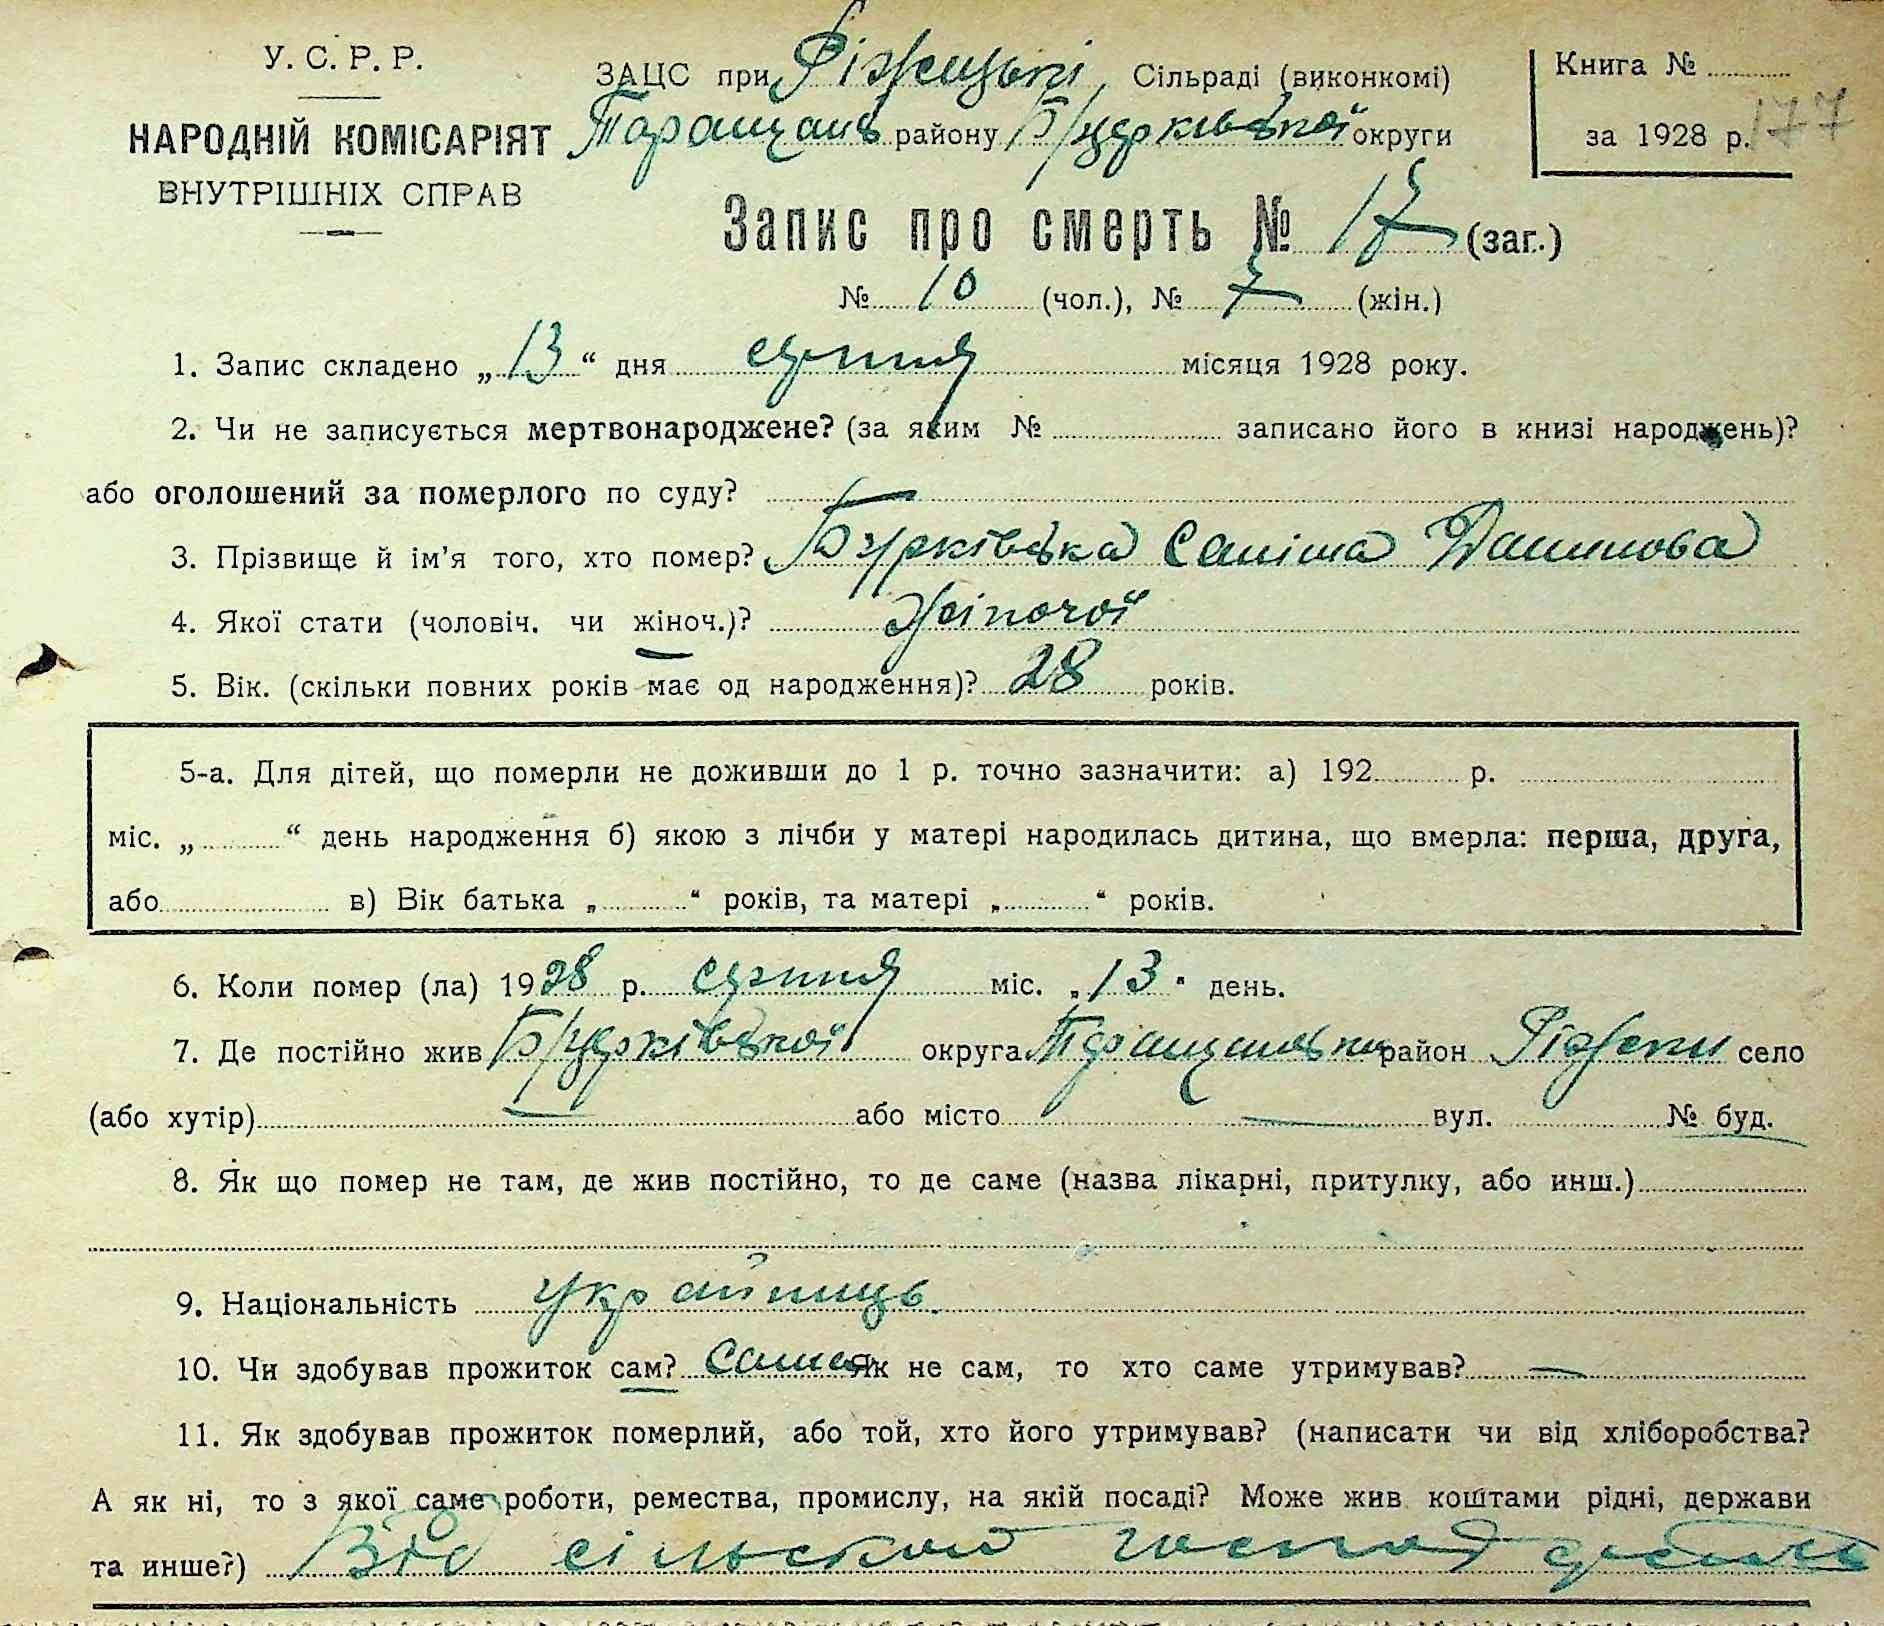 У. С. Р. Р.
НАРОДНІЙ КОМІСАРІЯТ
ВНУТРІШНІХ СПРАВ
ЗАЦС при Ріжецькі Сільраді (виконкомі)
Таращанс району Б/церківської округи
Книга №
за 1928 р. 177
Запис про смерть № 17 (заг.)
№ 10 (чол.), № 7 (жін.)
1. Запис складено „13“ дня серпня місяця 1928 року.
2. Чи не записується мертвонароджене? (за яким № записано його в книзі народжень)?
або оголошений за померлого по суду?
3. Прізвище й ім'я того, хто помер? Бурківська
4. Якої стати (чоловіч. чи жіноч.)? Жіночої
5. Вік. (скільки повних років має од народження)? 28 років.
5-а. Для дітей, що померли не доживши до 1 р. точно зазначити: а) 192 р.
міс. „ “ день народження б) якою з лічби у матері народилась дитина, що вмерла: перша, друга,
або в) Вік батька „ “ років, та матері „ “ років.
6. Коли помер (ла) 1928 р. серпня міс. „13“ день.
7. Де постійно жив Б/церківської округа Таращанський район Ріжки село
(або хутір) — або місто — вул. № буд.
8. Як що помер не там, де жив постійно, то де саме (назва лікарні, притулку, або инш.)
9. Національність українець.
10. Чи здобував прожиток сам? Сама Як не сам, то хто саме утримував? —
11. Як здобував прожиток померлий, або той, хто його утримував? (написати чи від хліборобства?
А як ні, то з якої саме роботи, ремества, промислу, на якій посаді? Може жив коштами рідні, держави
та инше?) Від сільского